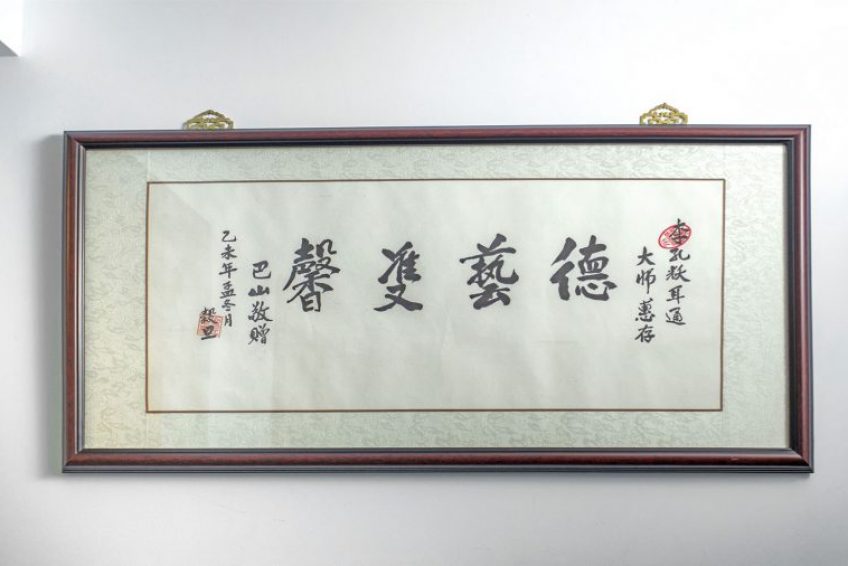 李孔 耳通
大师蕙存
德藝雙馨
巴山敬赠
乙未年孟冬月
穀旦